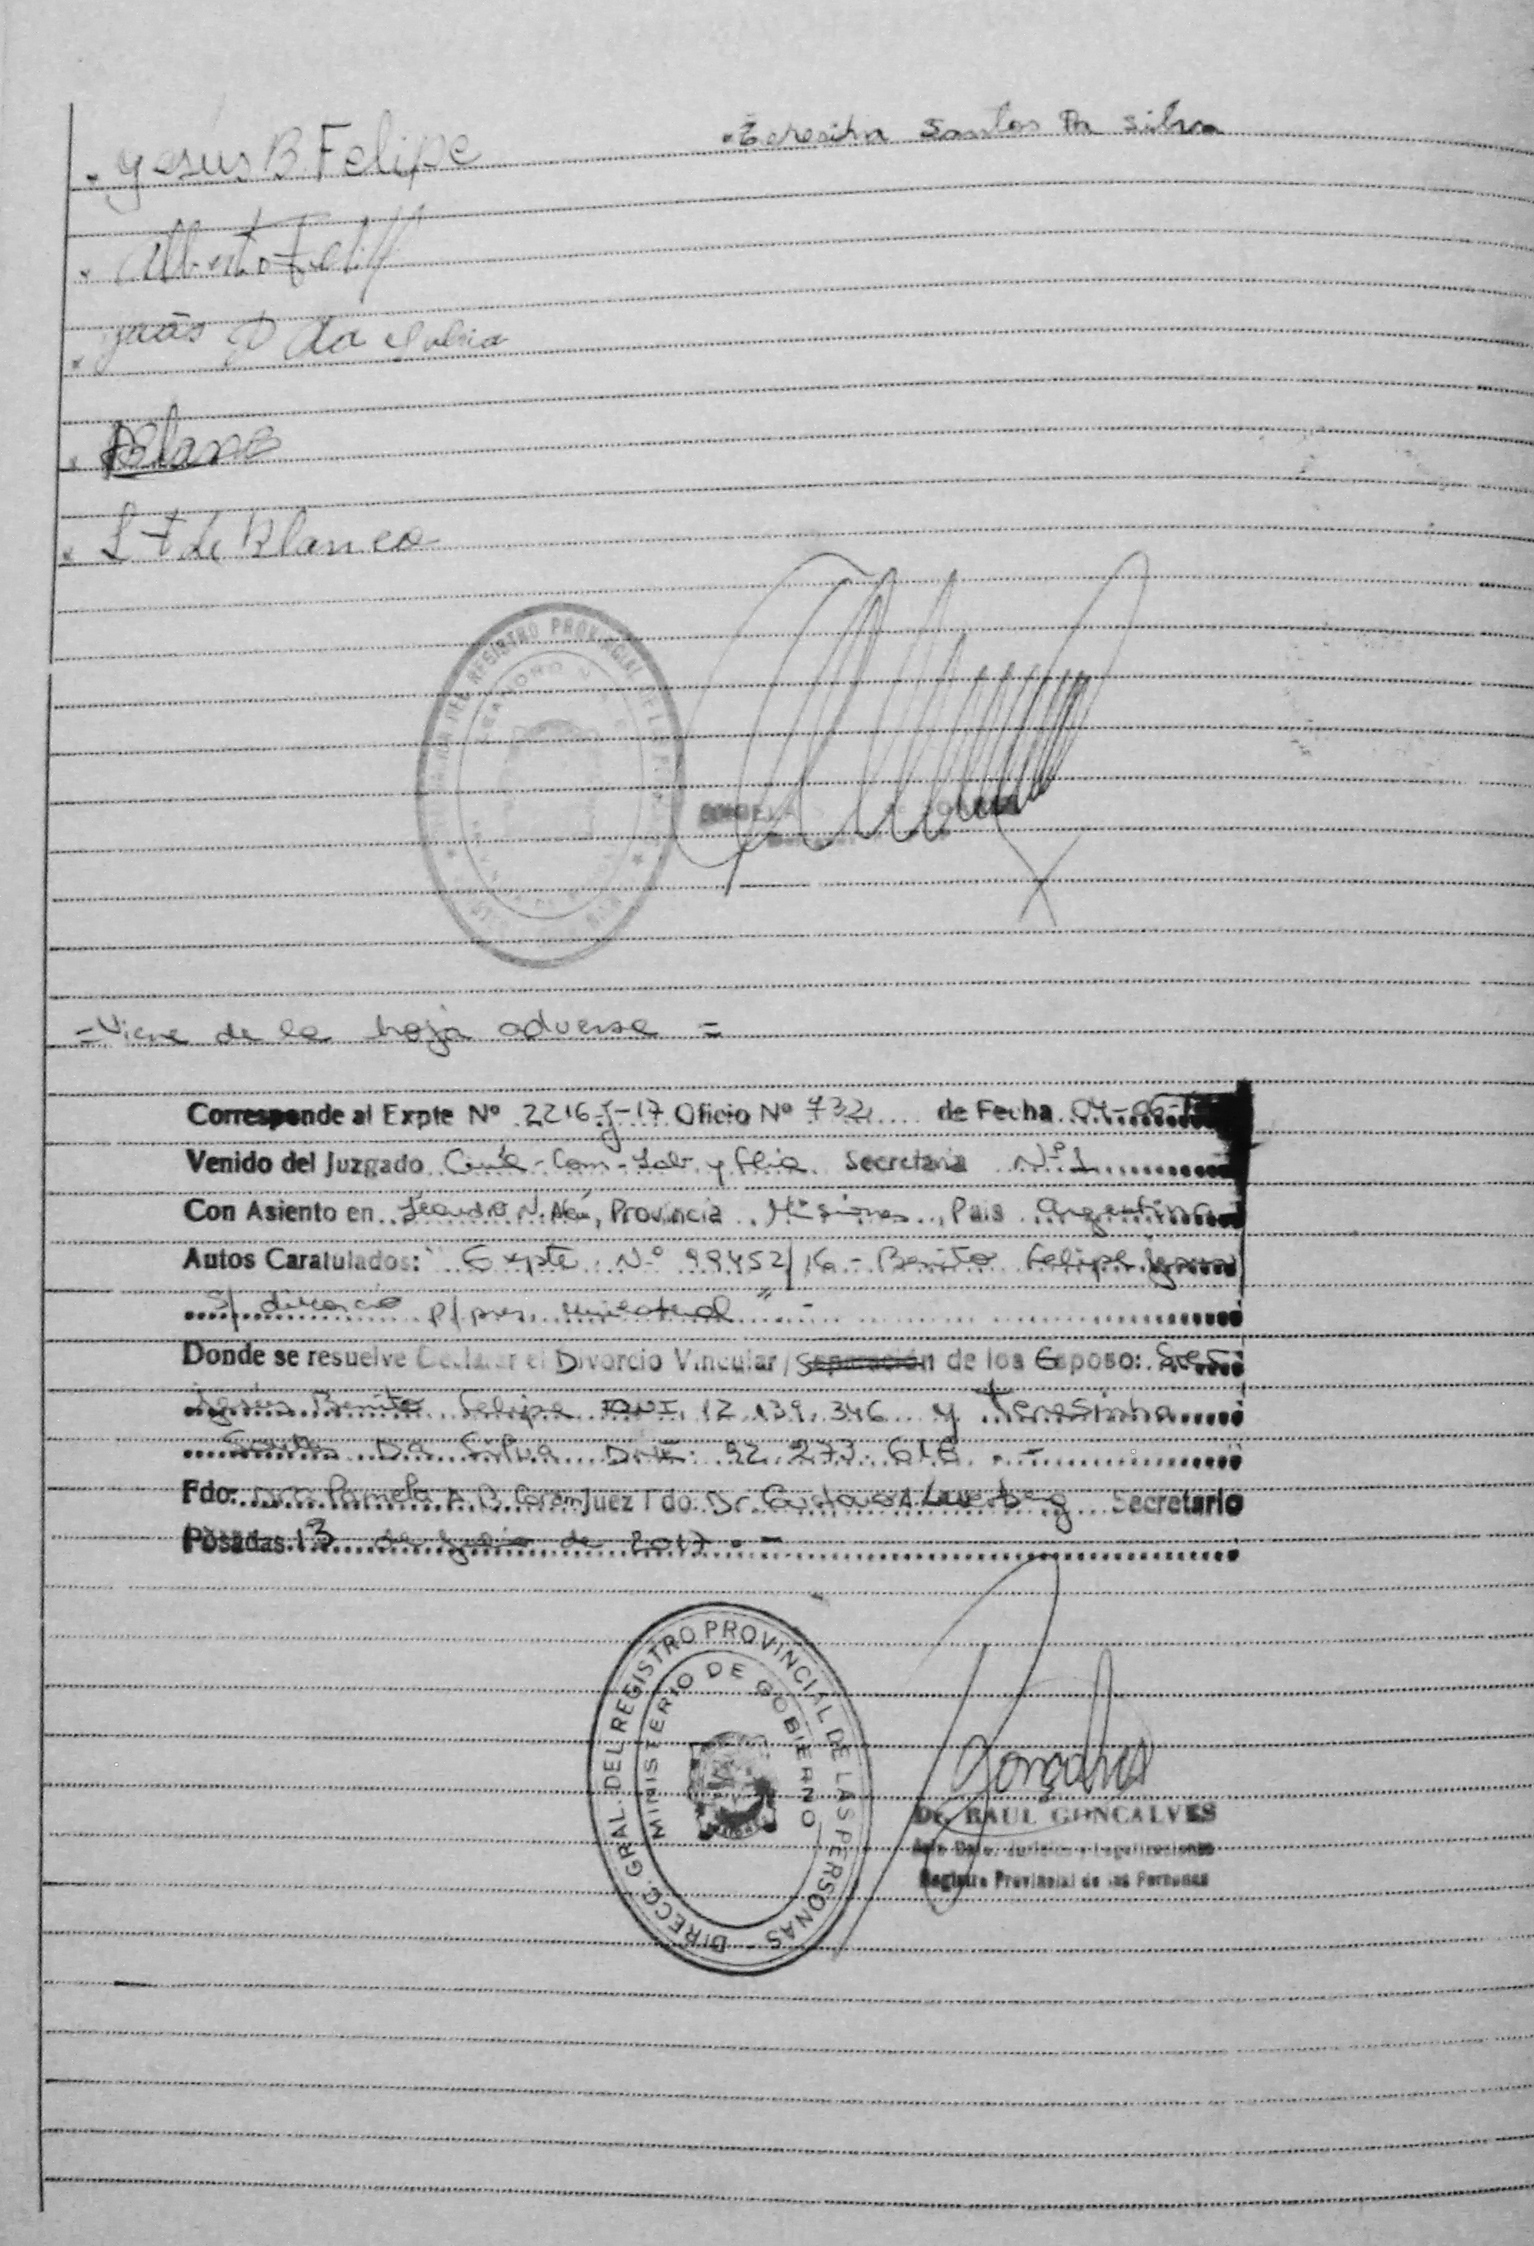 Jesus B. Felipe
Teresinha Santos Da Silva
Alberto
João
Blanco
L F de Blanco
REGISTRO PROVINCIAL DE LAS
LEANDRO N.
= Viene de la hoja adversa =
Corresponde al Expte Nº 2216-J-17 Oficio Nº 732 de Fecha 07-06-
Venido del Juzgado Civil-Com-Lab y flia Secretaria Nº 1
Con Asiento en Leandro N. Alem, Provincia Misiones, Pais Argentina
Autos Caratulados: "Expte Nº 99452/16 - Benito Felipe Jesus
S/ divorcio p/ pres. unilateral" -
Donde se resuelve Declarar el Divorcio Vincular / Separación de los Esposo: Sres
Jesus Benito Felipe DNI 12.139.346 y Teresinha
Santos Da Silva DNI: 92.273.618 . -
Fdo: Dra Pamela A. B. Juez Fdo. Dr. Gustavo A. Secretario
Posadas. 13 de Julio de 2017. -
DIRECC. GRAL. DEL REGISTRO PROVINCIAL DE LAS PERSONAS
MINISTERIO DE GOBIERNO
Gonçalves
Dr. RAUL GONCALVES
Registro Provincial de las Personas